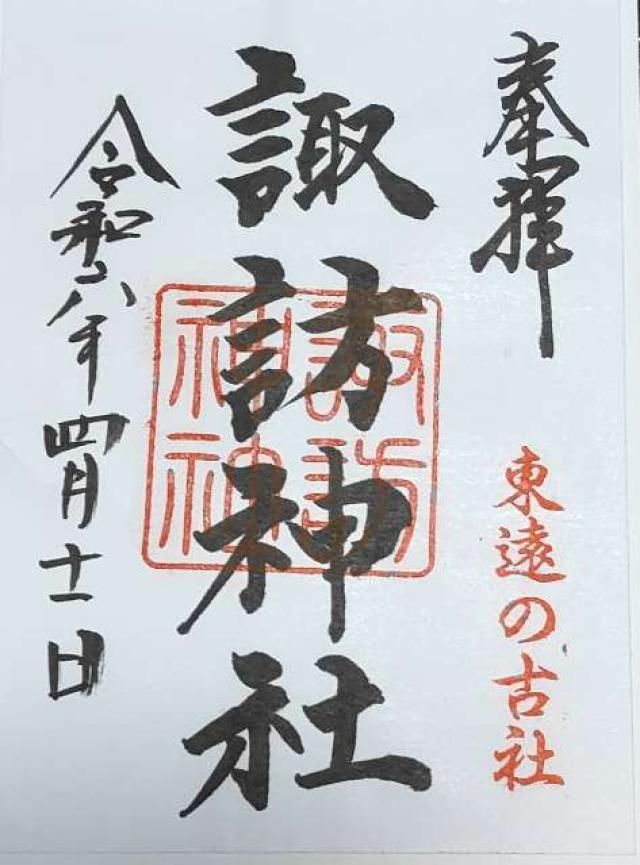 奉拝
東遠の古社
諏訪神社
諏訪神社
令和八年四月十一日